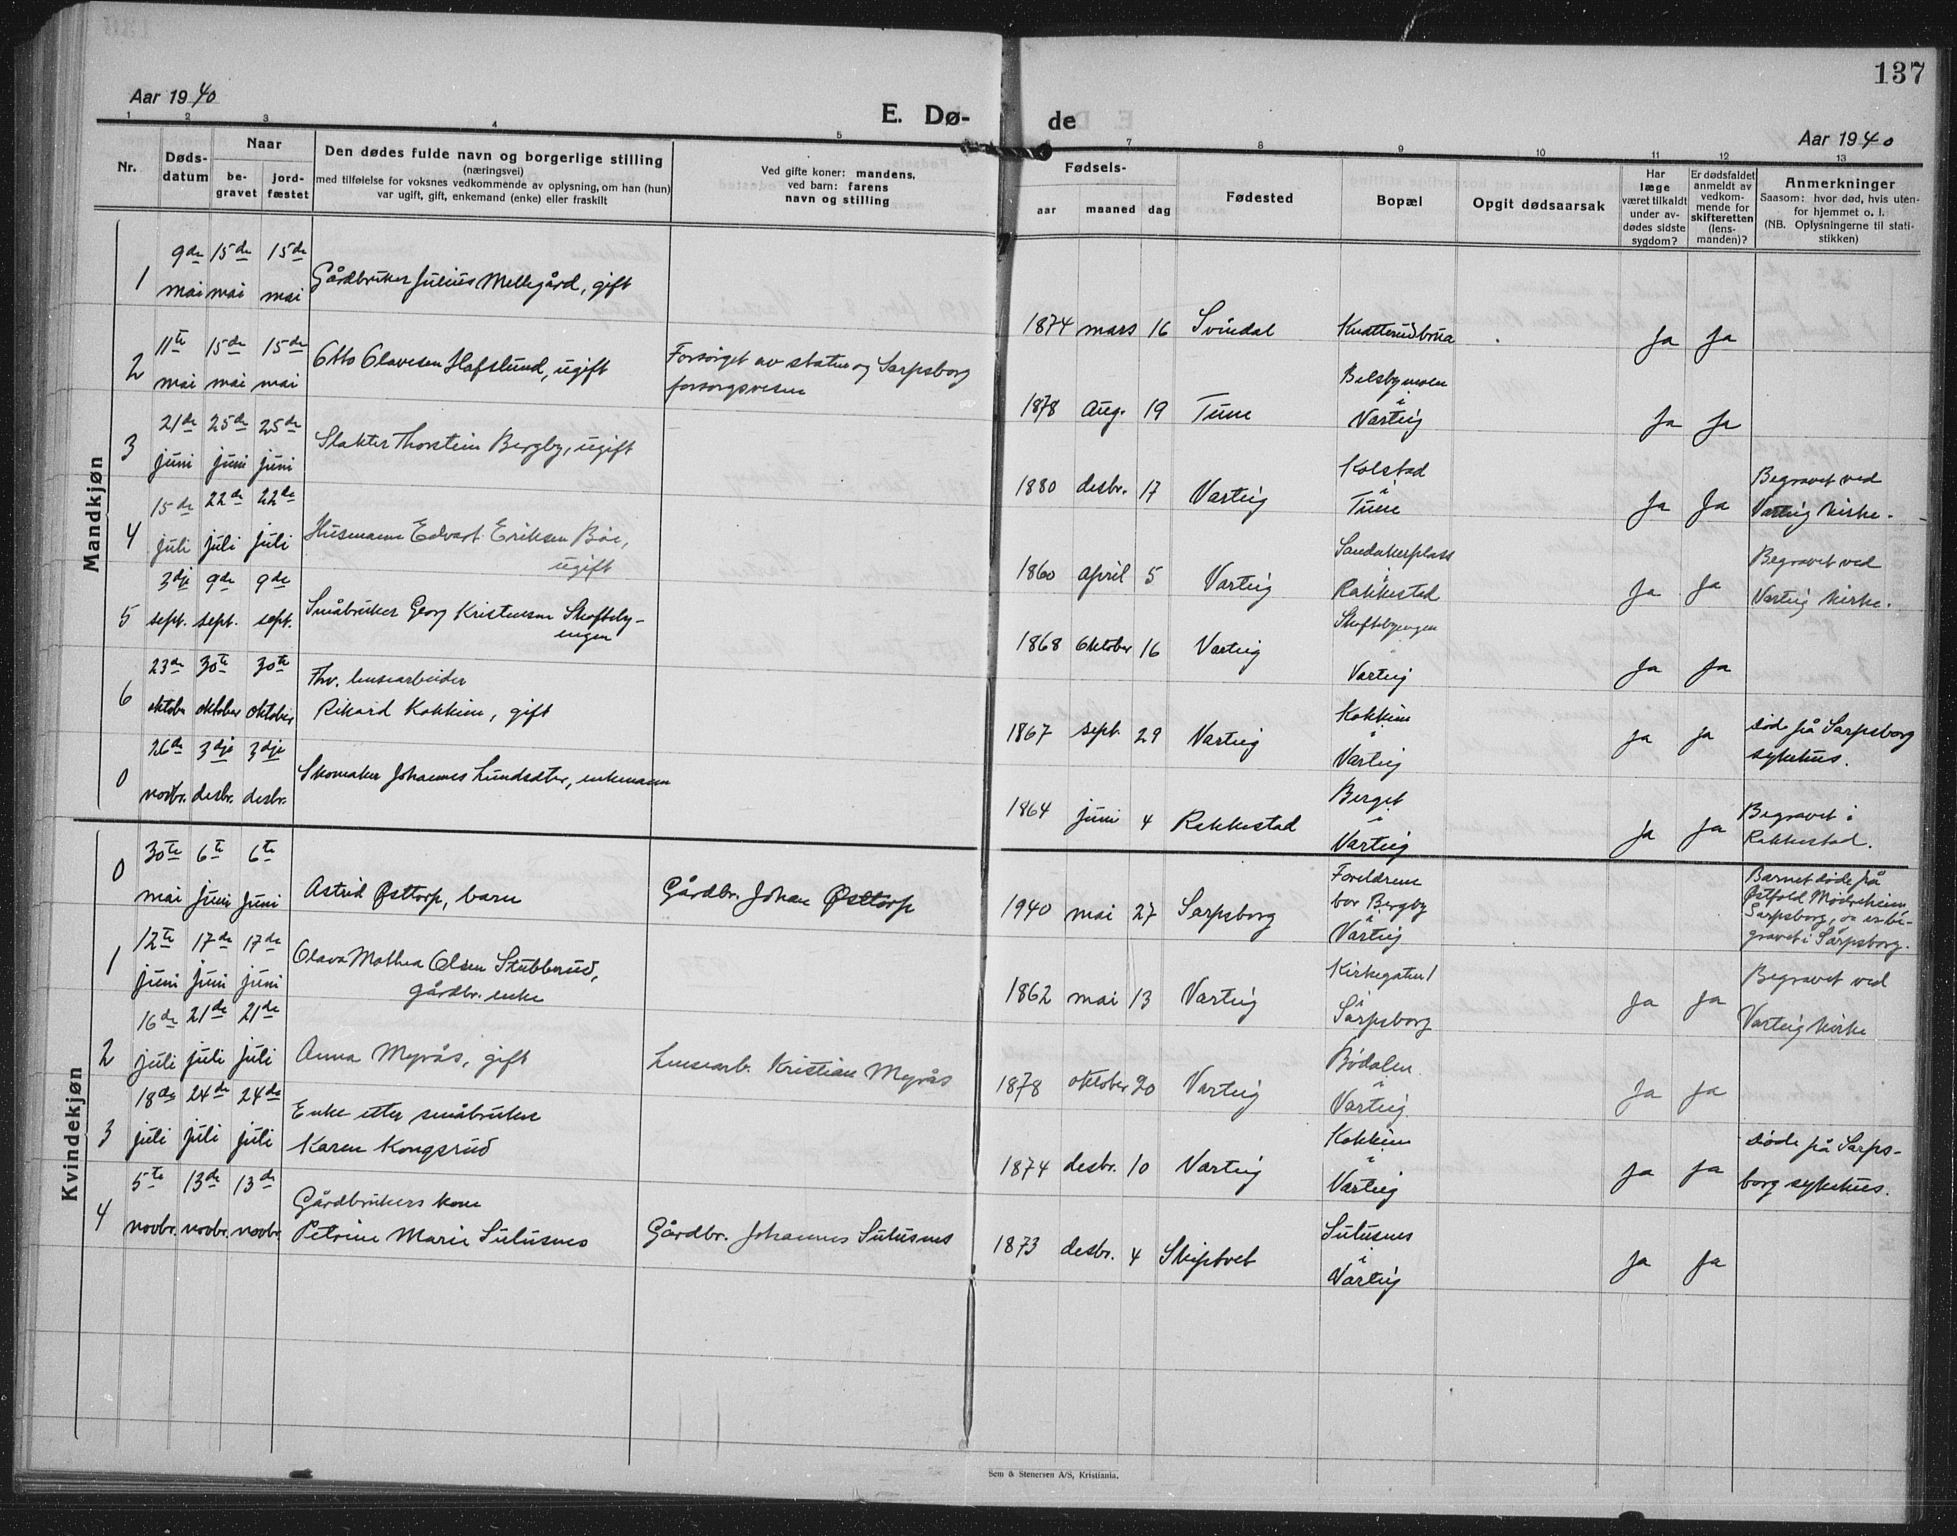 137
Aar 1940
E. Dø-
de
Aar 1940
1 2 3 4 5 7 8 9 10 11 12 13
Nr.
Døds-
datum
Naar
be-
gravet
jord-
fæstet
Den dødes fulde navn og borgerlige stilling
(næringsvei)
med tilføielse for voksnes vedkommende av oplysning, om han (hun)
var ugift, gift, enkemand (enke) eller fraskilt
Ved gifte koner: mandens,
ved barn: farens
navn og stilling
Fødsels-
aar maaned dag
Fødested
Bopæl
Opgit dødsaarsak
Har
læge
været tilkaldt
under av-
dødes sidste
sygdom?
Er dødsfaldet
anmeldt av
vedkom-
mende for
skifteretten
(lens-
manden)?
Anmerkninger
Saasom: hvor død, hvis uten-
for hjemmet o. l.
(NB. Oplysningerne til stati-
stikken)
Mandkjøn
1
9de 15de 15de
mai mai mai
Gårdbruker Julius Mellegård, gift
1874 mars 16 Svindal Knatterudbrua Ja Ja
2
11te 15de 15de
mai mai mai
Otto Olavesen Hafslund, ugift
Forsørget av staten og Sarpsborg
forsorgsvesen
1878 Aug. 19 Tune
Belsbymoen
i
Varteig
Ja Ja
3
21de 25de 25de
juni juni juni
Slakter Thorstein Bergby, ugift
1880 desbr. 17 Varteig
Kolstad
i
Tune
Ja Ja
Begravet ved
Varteig kirke.
4
15de 22de 22de
juli juli juli
Husmann Edvart Eriksen Bøe,
ugift
1860 april 5 Varteig
Sandakerplass
i
Rakkestad
Ja Ja
Begravet ved
Varteig kirke.
5
3dje 9de 9de
sept. sept. sept.
Småbruker Georg Kristensen Skofteby-
engen
1868 Oktober 16 Varteig
Skoftebyengen
Varteig
Ja Ja
6
23de 30te 30te
oktober oktober oktober
Fhv. lensearbeider
Rikard Kokkim, gift
1867 sept. 29 Varteig
Kokkim
i
Varteig
Ja Ja
Døde på Sarpsborg
sykehus.
0
26de 3dje 3dje
novbr. desbr. desbr.
Skomaker Johannes Lundsæter, enkemann
1864 juni 4 Rakkestad
Berget
i
Varteig
Ja Ja
Begravet i
Rakkestad.
Kvindekjøn
0
30te 6te 6te
mai Juni Juni
Astrid Østtorp, barn
Gårdbr. Johan Østtorp
1940 mai 27 Sarpsborg
Foreldrene
bor Bergby
i
Varteig
Barnet døde på
Østfold Mødrehjem
Sarpsborg, og er be-
gravet i Sarpsborg.
1
12te 17de 17de
juni juni juni
Olava Mathea Olsen Stubberud,
gårdbr. enke
1862 mai 13 Varteig
Kirkegaten 1
i
Sarpsborg
Ja Ja
Begravet ved
Varteig kirke
2
16de 21de 21de
juli juli juli
Anna Myrås, gift
Lensearb. Kristian Myrås
1878 oktober 20 Varteig
Bødalen
i
Varteig
Ja Ja
3
18de 24de 24de
juli juli juli
Enke etter småbruker
Karen Kongsrud
1874 desbr. 10 Varteig
Kokkim
i
Varteig
Ja Ja
Døde på Sarps-
borg sykehus.
4
5te 13de 13de
novbr. novbr. novbr.
Gårdbrukers kone
Petrine Marie Sulusnes
Gårdbr. Johannes Sulusnes
1873 desbr. 4 Skiptvet
Sulusnes
i
Varteig
Ja Ja
Sem & Stenersen A/S, Kristiania.